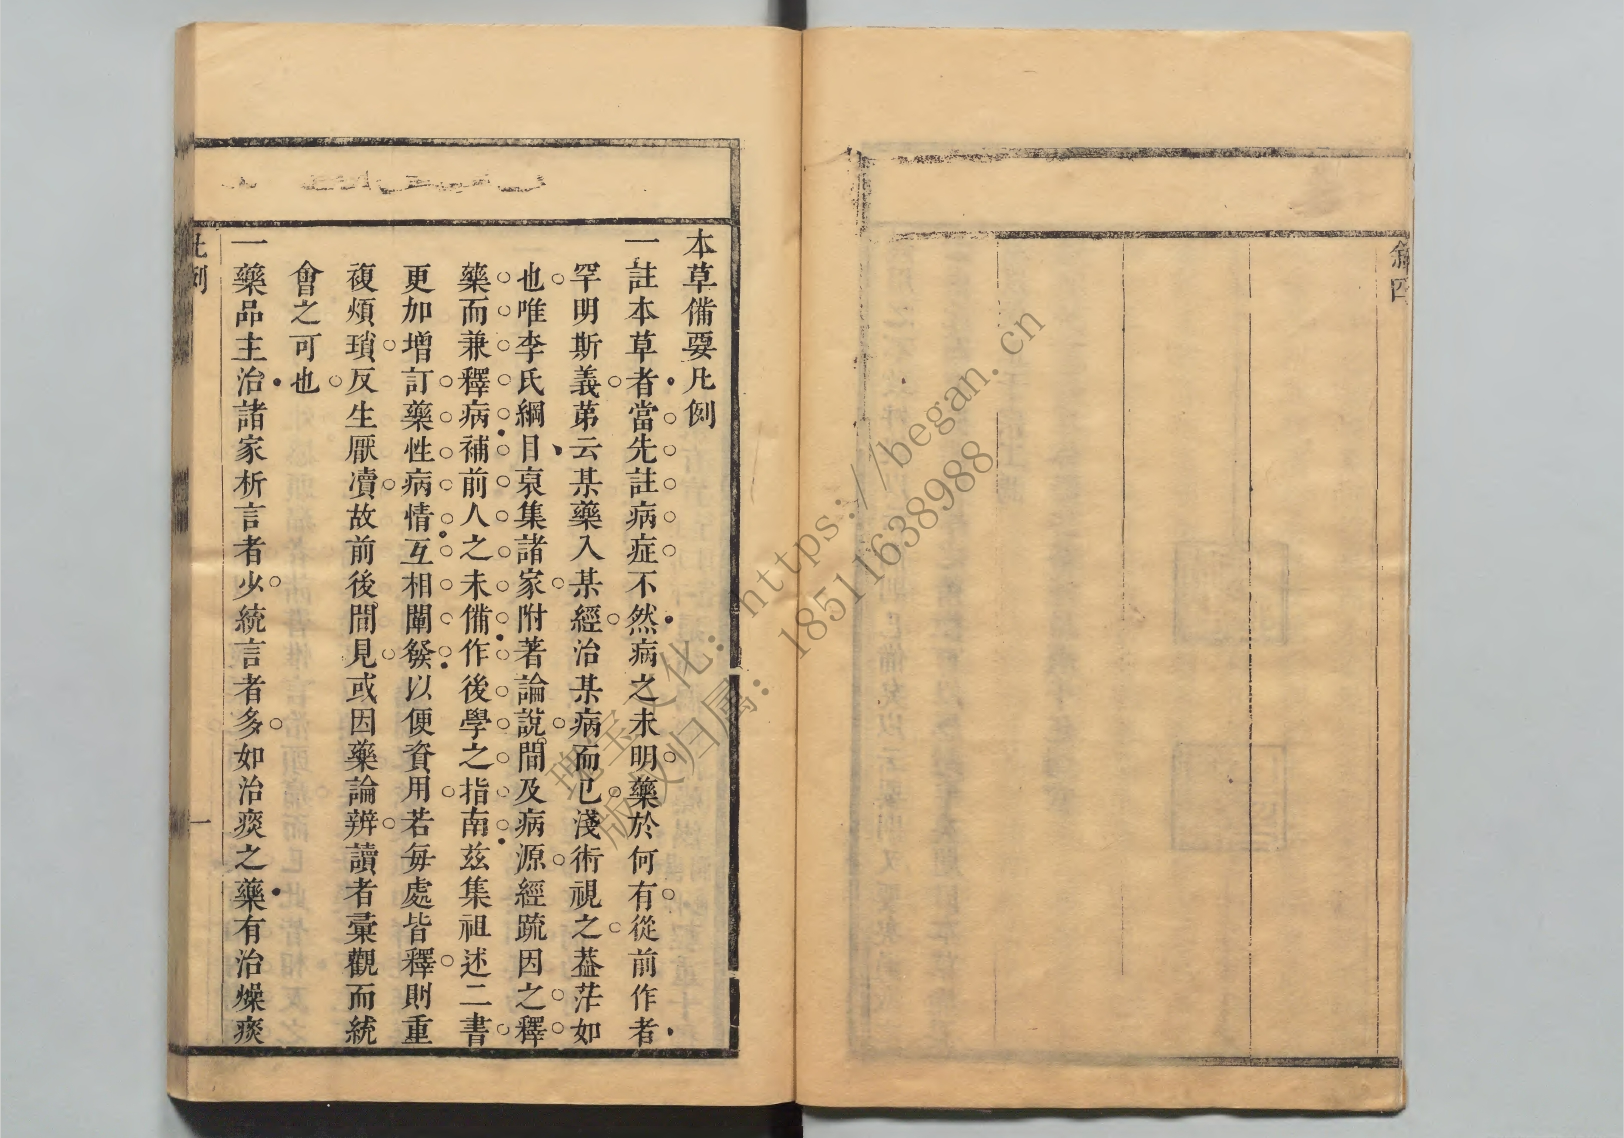 敘
四
本草備要凡例
一註本草者當先註病症不然病之未明藥於何有從前作者
罕明斯義第云某藥入某經治某病而已淺術視之葢茫如
也唯李氏綱目裒集諸家附著論說間及病源經疏因之釋
藥而兼釋病補前人之未備作後學之指南兹集祖述二書
更加增訂藥性病情互相闡發以便資用若每處皆釋則重
複煩瑣反生厭凟故前後間見或因藥論辨讀者彙觀而統
會之可也
一藥品主治諸家析言者少統言者多如治痰之藥有治燥痰
凡例
一
瑰宝文化：https://began.cn
版权归属：18511638988